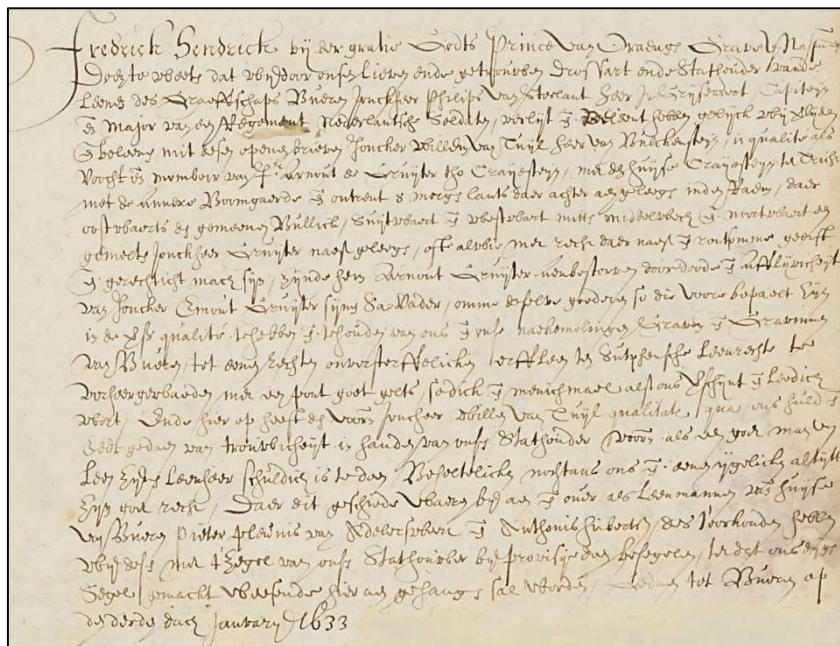 Fredrick Hendrick bij der gratie Godts Prince van Oraengs Grave v Nassau
Doen te weets dat wij door onsen Lieven ende getrouwen Drossart ende Stathouder vande
Leenen des Graeffschaps Bueren Jonckheer Philips van Steelant heer Capiteyn
en Major van een Regement Nederlantsche Soldaten, verlijt en Beleent hebben gelijck wij verlijden
en beleens mit desen openen brieven Joncher Willem van Tuijl heer van Bulckensteyn, in qualite als
Voocht en momboir van Jr. Arnout de Cruijter tho Crayesteyn, met den huijse Crayesteyn te Tricht
met de annexe Boomgaerde en ontrent 8 mergs lants daer achter aen gelegs inden Raem, daer
oostwaerts de gemeenen Bullick, Suijtwaert en westwaert mitts middelwech en noortwaert de
gemelte Jonckheer Cruijter naest gelegs, ofte alwie met recht daer naest en rontsomme geerft
en gerechticht mach sijn, zijnde hem Aernout Cruijter aenbestorven door doode en afflijvicheijt
van Joncher Emont Cruijter sijns Sa. Vader, omme deselve goederen so die voore bepaelt zijn
in de qualite te hebben en te houden van ons en onse naekomelingen Graven en Gravinnen
van Bueren, tot eenen rechten onversterffelicken erffleen ten Sutphensche Leenrechte te
verheergewaeden met een pont goet gelts, so dick en menichmael alst ons verschijnt en Leedich
wort, Ende hier op heeft de voorn Joncheer Willem van Tuijl qualitate qua, ons huld en
Eedt gedaen van trouwicheijt in handen van onss Stathouder voorn als een goet man en
Leen zijns Leenheer schuldich is te doen Beheltelicken nochtans ons en eenen ijgelicken altijt
zijn goet recht, Daer dit geschiede waeren bij aen en over als Leenmannen ons huijse
van Bueren Pieter van Adelerswaert en Anthonis Huberts, des t'oorkonden hebben
wij dese met t' Zegel van onss Stathouder bij provisije doen besegelen, ter dat ons eijgs
Segel gemaect wesende hier aen gehangs sal worden, Gedaen tot Bueren op
den derden dach January 1633